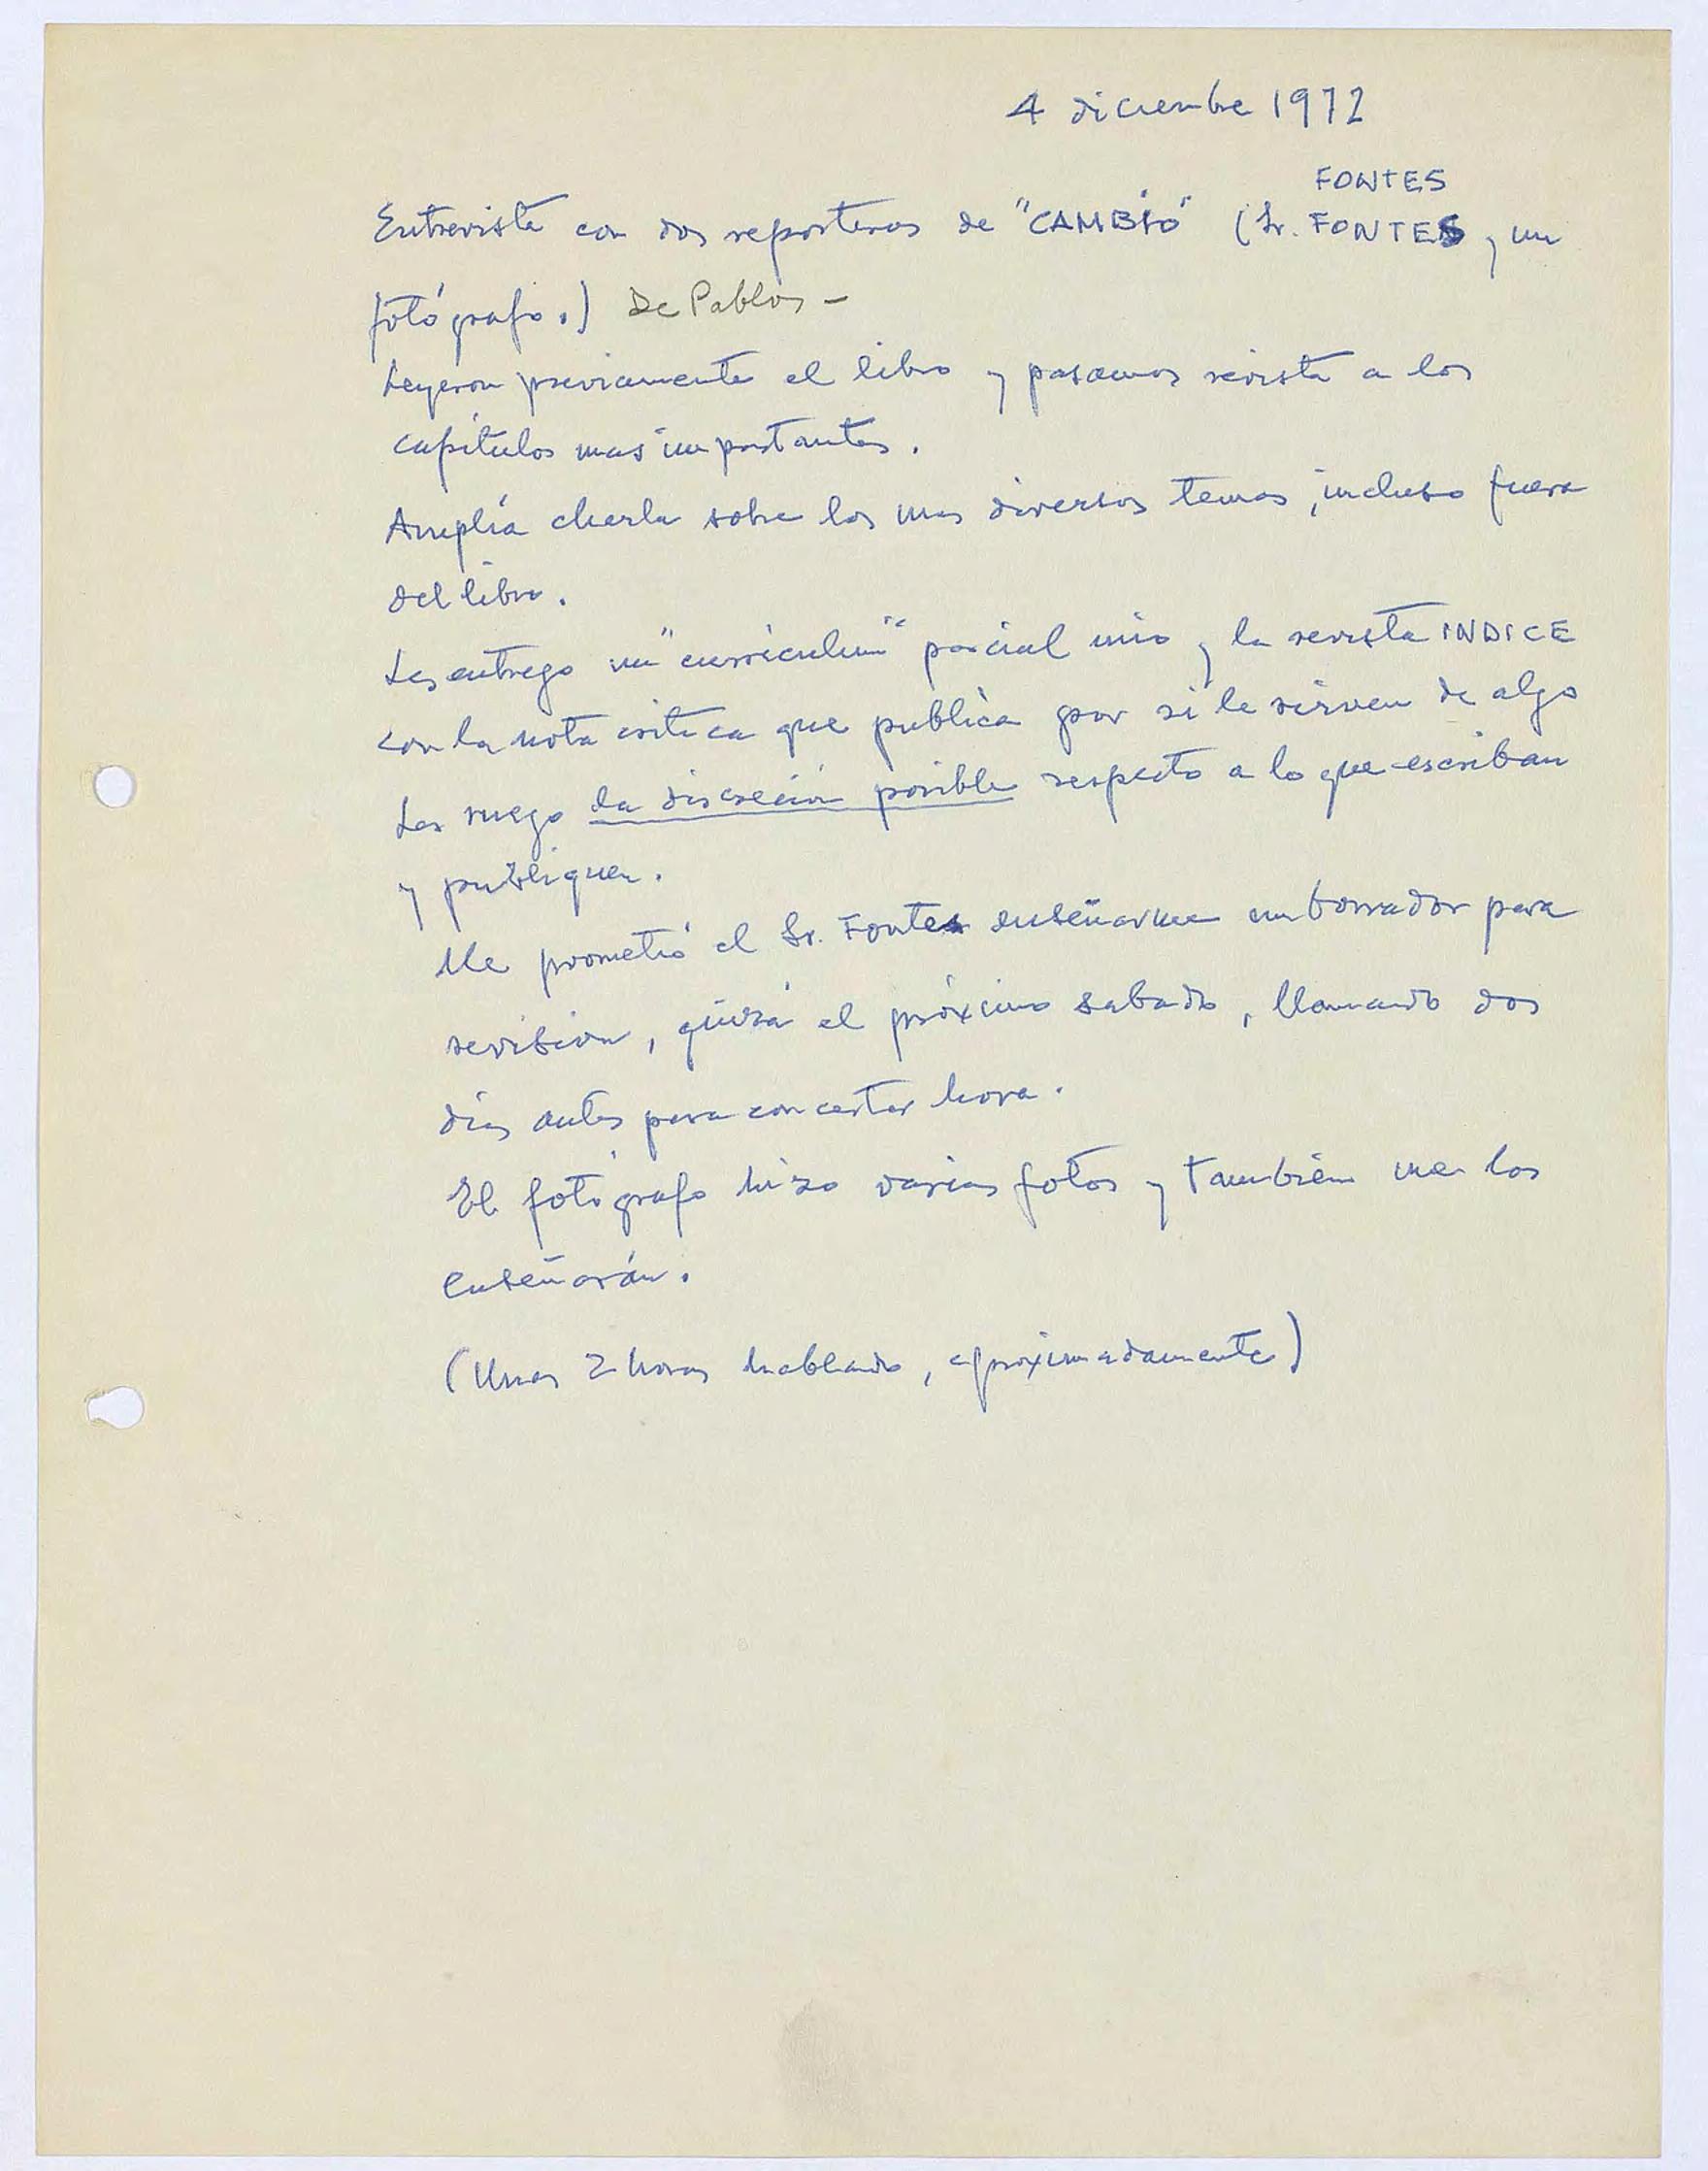 4 diciembre 1972
FONTES
Entrevista con dos reporteros de "CAMBIO" (Sr. FONTES y un
fotógrafo.) De Pablos -
Leyeron previamente el libro y pasamos revista a los
capítulos mas importantes.
Amplía charla sobre los mas diversos temas, incluso fuera
del libro.
Les entrego un "curriculum" parcial mio y la revista INDICE
con la nota critica que publica por si le sirven de algo
Les ruego la discreción posible respecto a lo que escriban
y publiquen.
Me prometió el Sr. Fontes enseñarme un borrador para
revision, quizá el próximo sabado, llamando dos
dias antes para concertar hora.
El fotógrafo hizo varias fotos y tambien me las
enseñarán.
(Unas 2 horas hablando, aproximadamente)